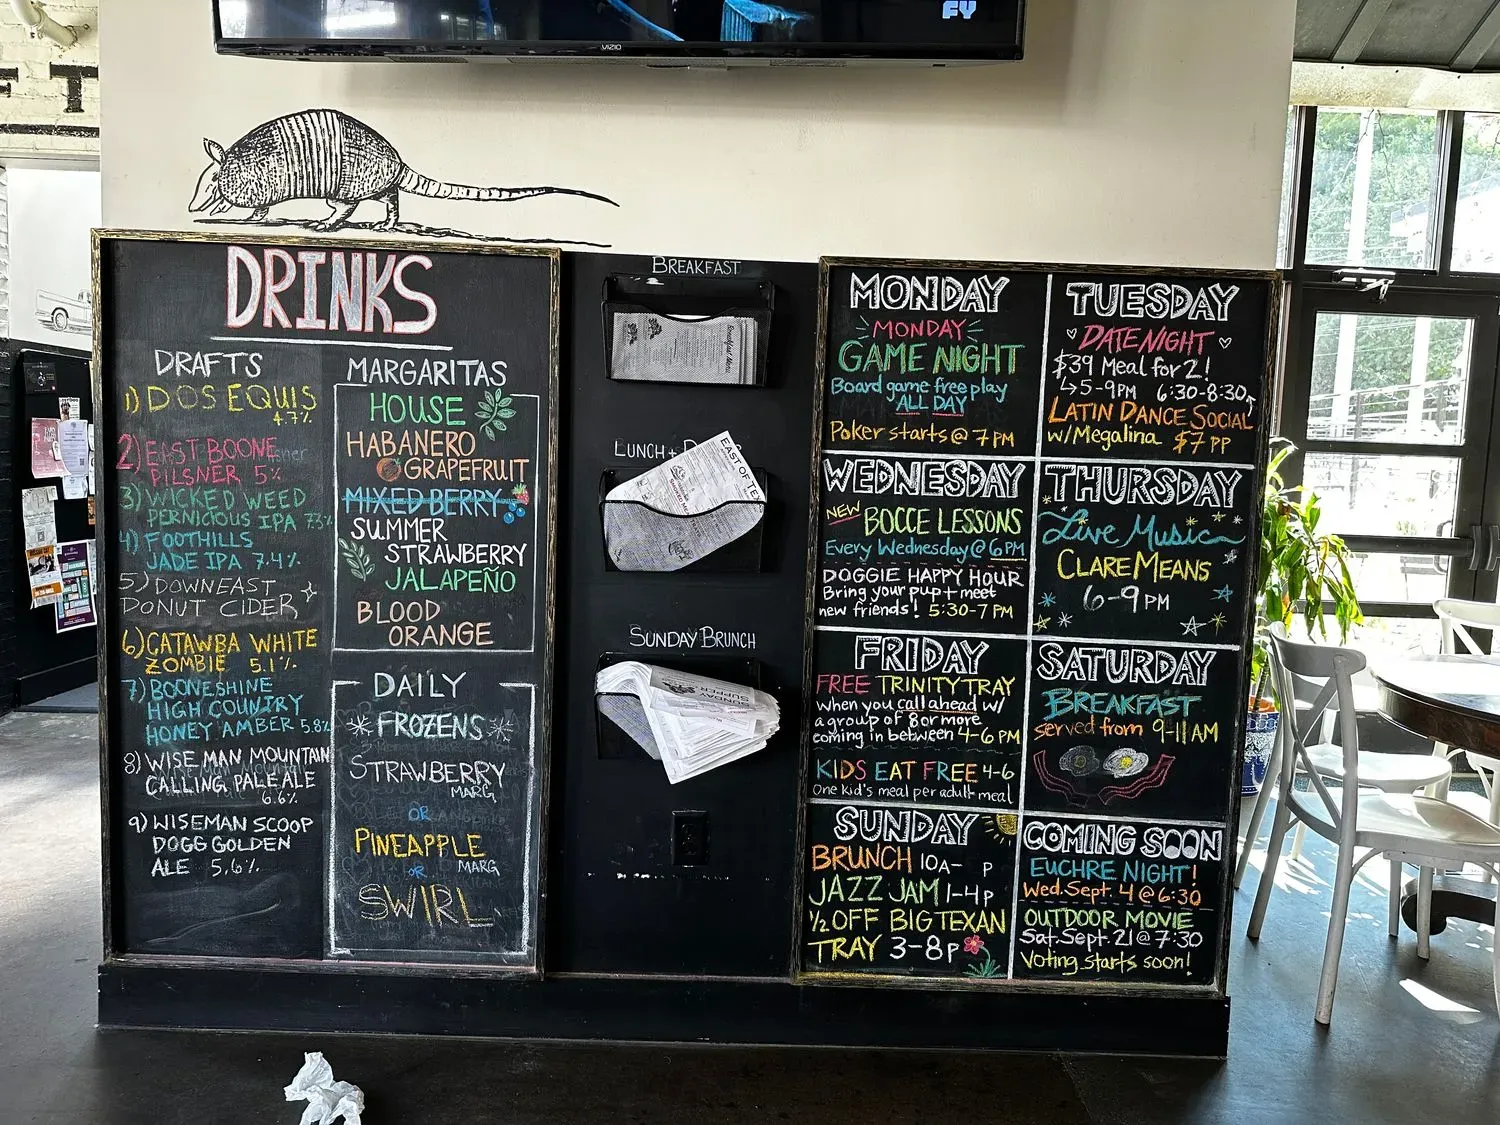 FY
VIZIO
DRINKS
DRAFTS
1) DOS EQUIS
4.7%
2) EAST BOONE
PILSNER 5%
3) WICKED WEED
PERNICIOUS IPA 7.3%
4) FOOTHILLS
JADE IPA 7.4%
5) DOWNEAST
DONUT CIDER
6) CATAWBA WHITE
ZOMBIE 5.1%
7) BOONESHINE
HIGH COUNTRY
HONEY AMBER 5.8%
8) WISE MAN MOUNTAIN
CALLING PALE ALE
6.6%
9) WISEMAN SCOOP
DOGG GOLDEN
ALE 5.6%
MARGARITAS
HOUSE
HABANERO
GRAPEFRUIT
MIXED BERRY
SUMMER
STRAWBERRY
JALAPEÑO
BLOOD
ORANGE
DAILY
FROZENS
STRAWBERRY
MARG
OR
PINEAPPLE
MARG
OR
SWIRL
BREAKFAST
LUNCH +
EAST OF TEX
SUNDAY BRUNCH
MONDAY
MONDAY
GAME NIGHT
Board game free play
ALL DAY
Poker starts @ 7PM
TUESDAY
DATE NIGHT
$39 Meal for 2!
5-9PM 6:30-8:30
LATIN DANCE SOCIAL
w/Megalina $7 PP
WEDNESDAY
NEW BOCCE LESSONS
Every Wednesday @ 6PM
DOGGIE HAPPY HOUR
Bring your pup + meet
new friends! 5:30-7PM
THURSDAY
Live Music
CLARE MEANS
6-9PM
FRIDAY
FREE TRINITY TRAY
when you call ahead w/
a group of 8 or more
coming in between 4-6PM
KIDS EAT FREE 4-6
One kid's meal per adult meal
SATURDAY
BREAKFAST
served from 9-11AM
SUNDAY
BRUNCH 10A- P
JAZZ JAM 1-4P
½ OFF BIG TEXAN
TRAY 3-8P
COMING SOON
EUCHRE NIGHT!
Wed. Sept. 4 @ 6:30
OUTDOOR MOVIE
Sat. Sept. 21 @ 7:30
Voting starts soon!